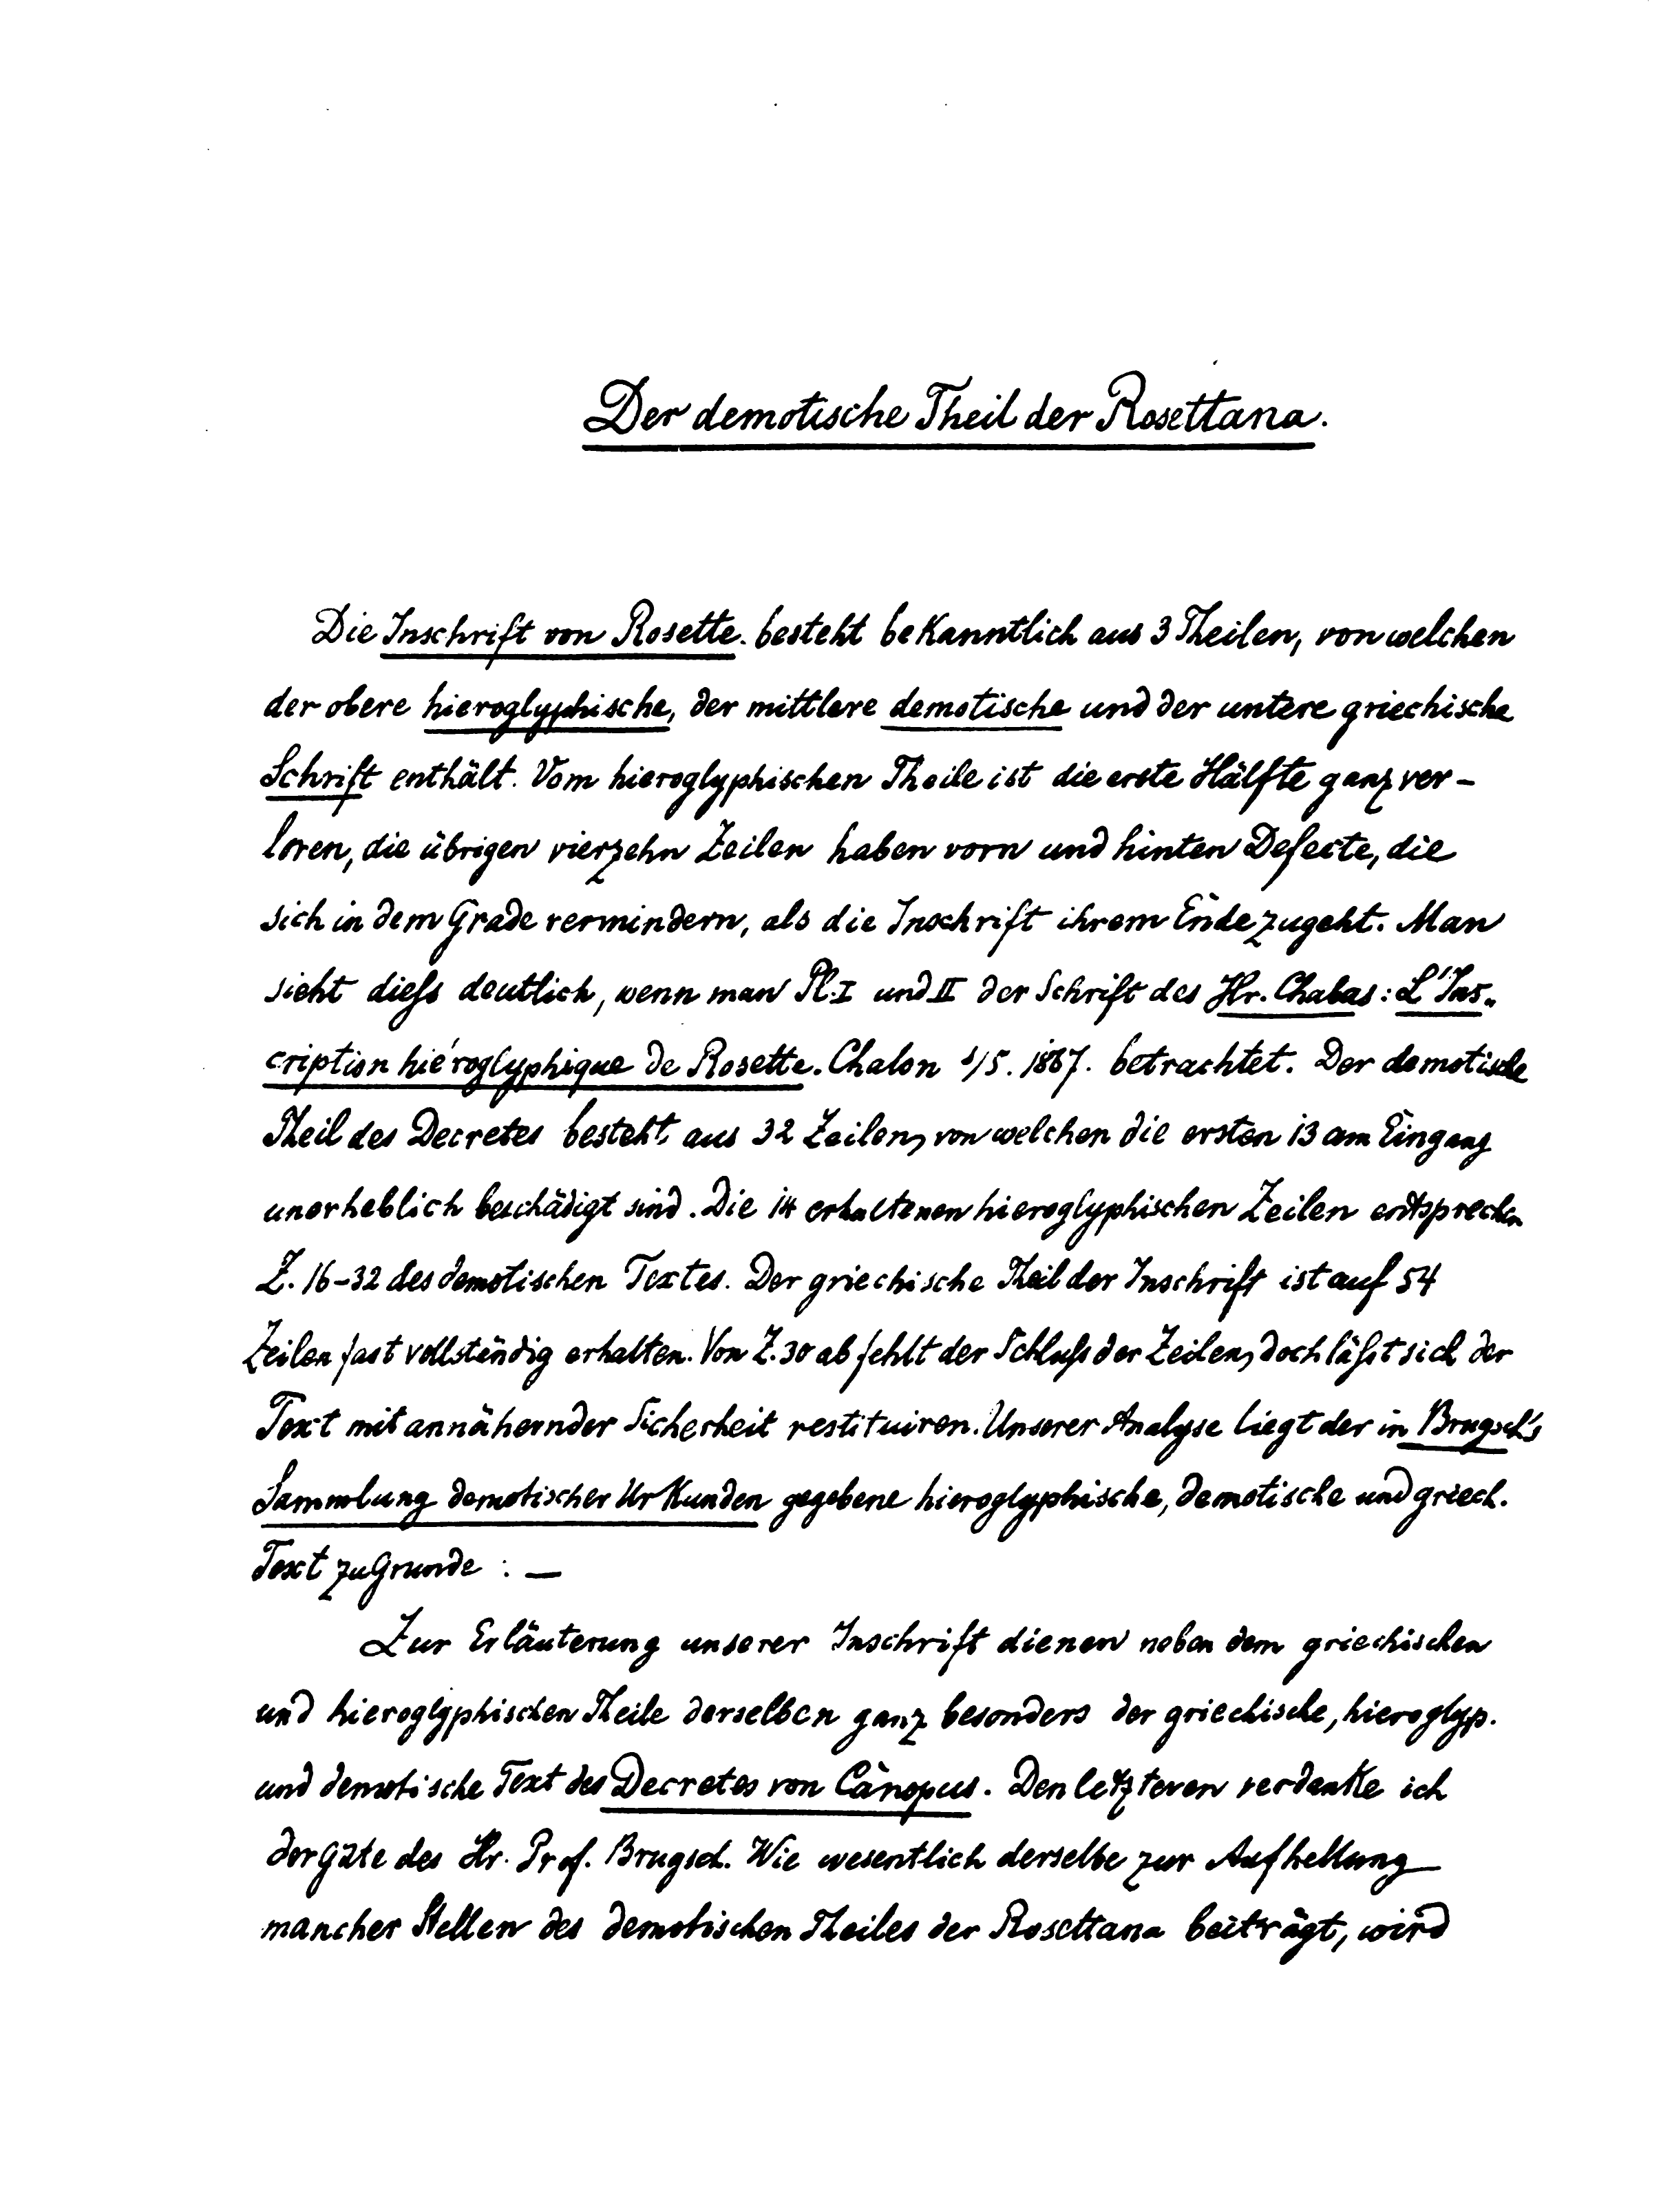 Der demotische Theil der Rosettana.
Die Inschrift von Rosette besteht bekanntlich aus 3 Theilen, von welchen
der obere hieroglyphische, der mittlere demotische und der untere griechische
Schrift enthält. Vom hieroglyphischen Theile ist die erste Hälfte ganz ver-
loren, die übrigen vierzehn Zeilen haben vorn und hinten Defecte, die
sich in dem Grade vermindern, als die Inschrift ihrem Ende zugeht. Man
sieht diess deutlich, wenn man Pl. I und II der Schrift des Hr. Chabas: L'Ins-
cription hiéroglyphique de Rosette. Chalon s/S. 1867. betrachtet. Der demotische
Theil des Decretes besteht aus 32 Zeilen, von welchen die ersten 13 am Eingang
unerheblich beschädigt sind. Die 14 erhaltenen hieroglyphischen Zeilen entsprechen
Z. 16-32 des demotischen Textes. Der griechische Theil der Inschrift ist auf 54
Zeilen fast vollständig erhalten. Von Z. 30 ab fehlt der Schluss der Zeilen, doch lässt sich der
Text mit annähernder Sicherheit restituiren. Unserer Analyse liegt der in Brugsch's
Sammlung demotischer Urkunden gegebene hieroglyphische, demotische und griech.
Text zu Grunde : —
Zur Erläuterung unserer Inschrift dienen neben dem griechischen
und hieroglyphischen Theile derselben ganz besonders der griechische, hieroglyp.
und demotische Text des Decretes von Canopus. Den letzteren verdanke ich
der Güte des Hr. Prof. Brugsch. Wie wesentlich derselbe zur Aufhellung
mancher Stellen des demotischen Theiles der Rosettana beiträgt, wird